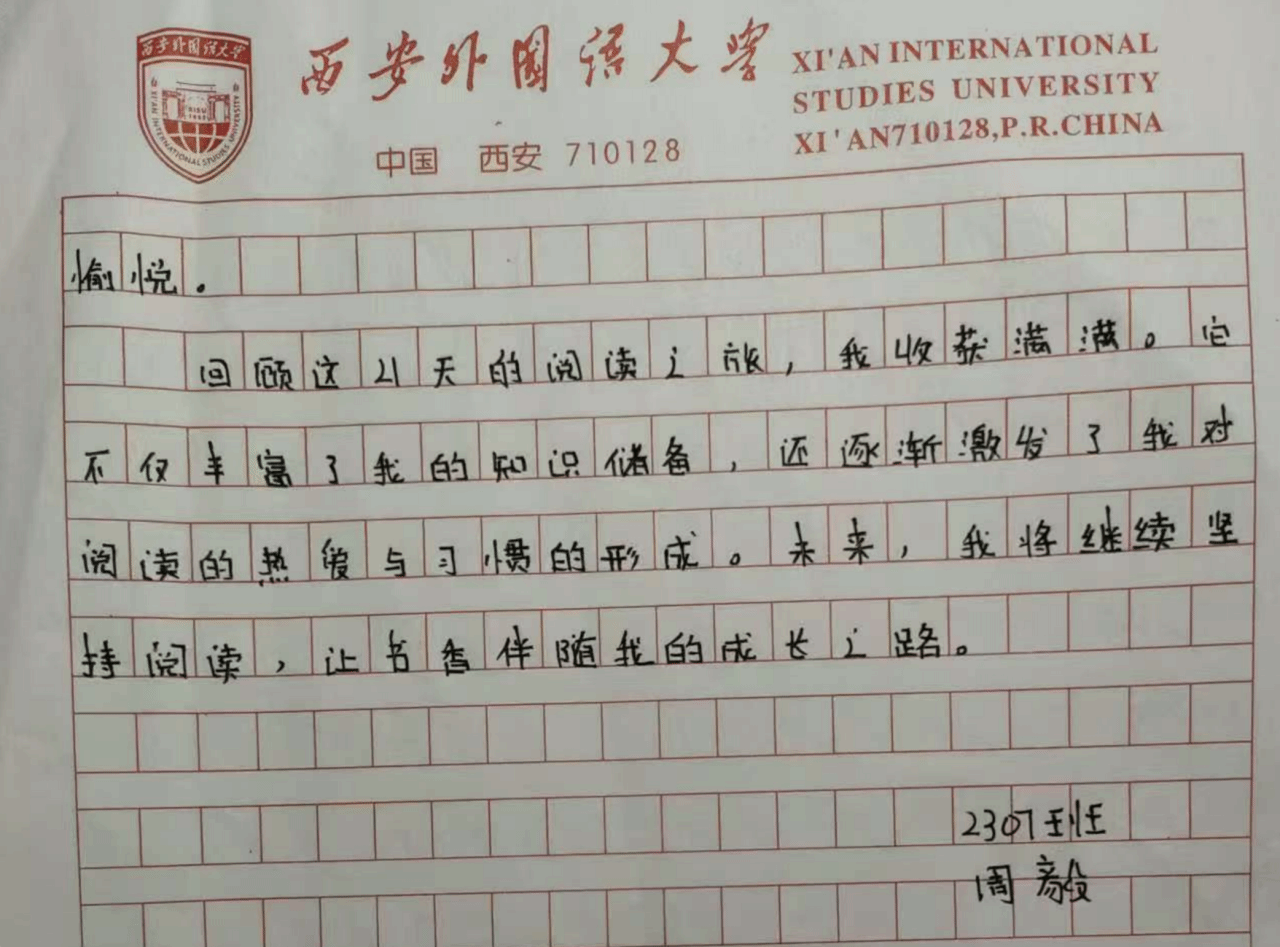 西安外国语大学
XI'AN INTERNATIONAL STUDIES UNIVERSITY
SISU
1952
西安外国语大学
中国 西安 710128
XI'AN INTERNATIONAL
STUDIES UNIVERSITY
XI'AN710128,P.R.CHINA
愉悦。
回顾这21天的阅读之旅，我收获满满。它
不仅丰富了我的知识储备，还逐渐激发了我对
阅读的热爱与习惯的形成。未来，我将继续坚
持阅读，让书香伴随我的成长之路。
2307班
周毅